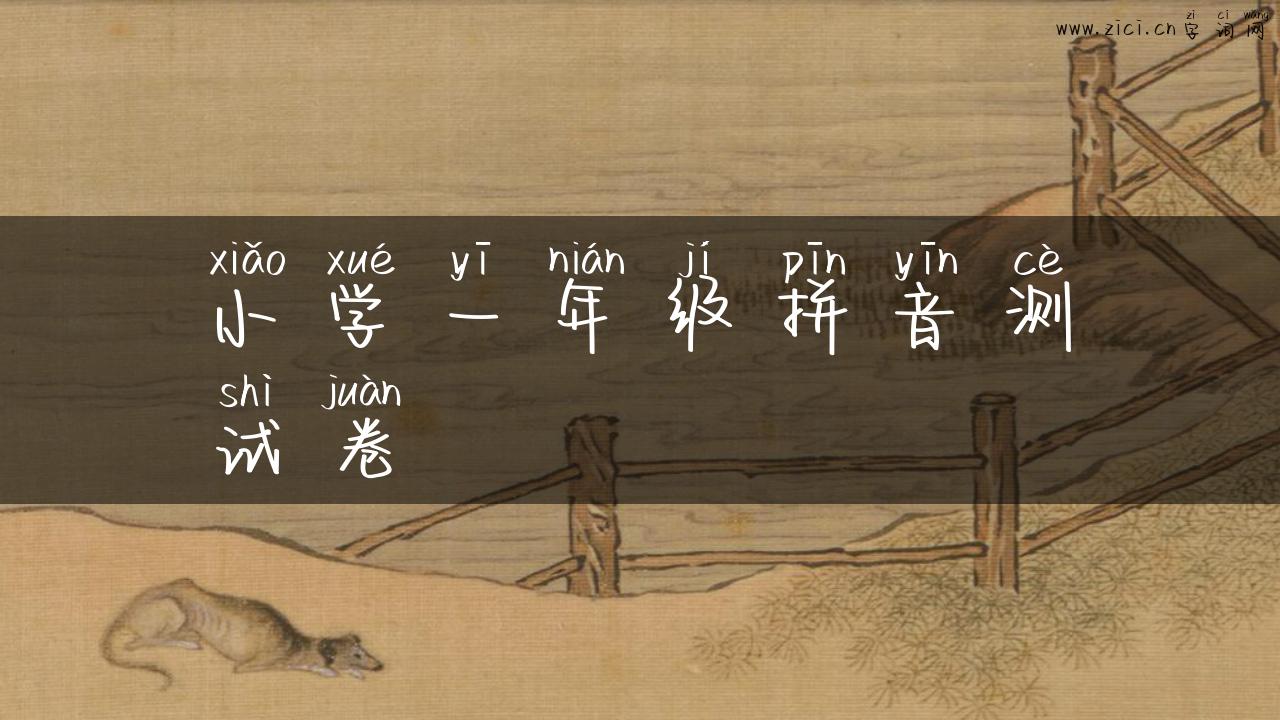 zì cí wǎng
www.zici.cn 字 词 网
xiǎo xué yī nián jí pīn yīn cè
小 学 一 年 级 拼 音 测
shì juàn
试 卷